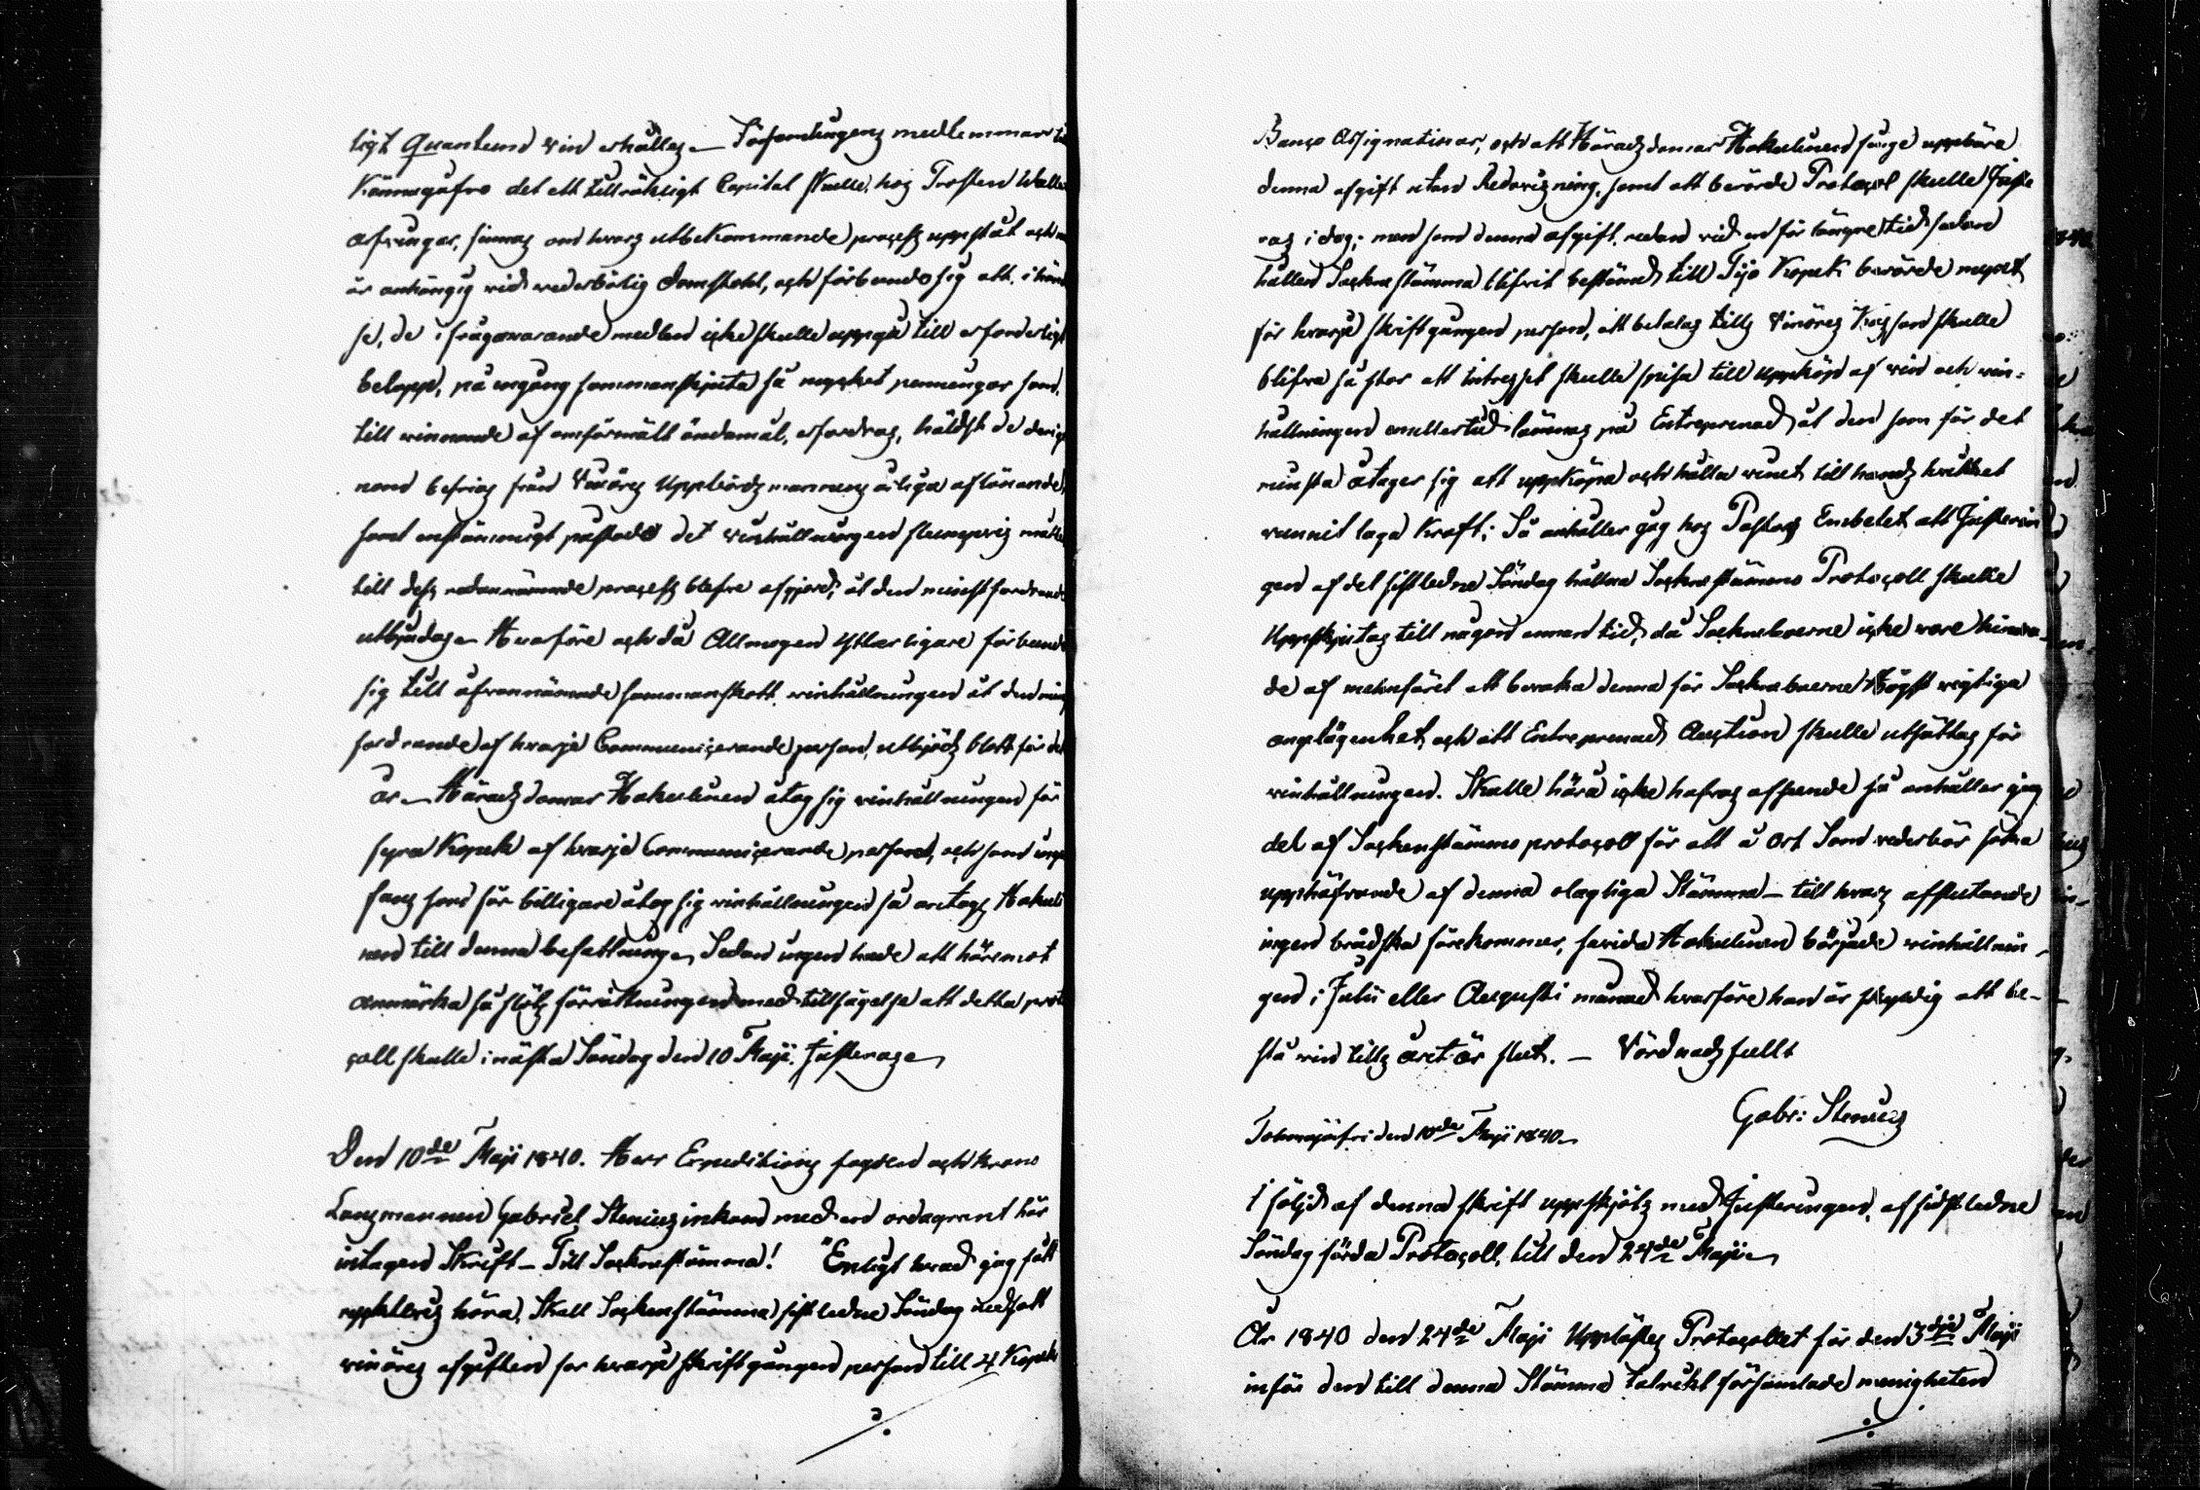 ligt Quantum vin erhållas. Församlingens medlemmar til
Kännagåfvo det ett tillräkligt Capital skulle hos Prosten Walle
arfvingar, finnas om hvars utbekommande process uppstått och nu
är anhängig vid vederbörlig Domstohl, och förbundo sig att, i händ
se, de i frågavarande medlen icke skulle uppgå till erforderligt
belopp, på en gång sammanskjuta så mycket penningar som
till vinnande af omförmält ändamål, erfordras, håldst de derige
nom befrias från Vinörs Uppbördsmannens årliga aflönande,
samt enstämmigt påstodo det vinhållningen slumpvis måtte
till dess ofvannämnde process blefve afgjord, åt den minst fordrande
utbjudas. Hvarföre och då Allmogen ytterligare förbundit
sig till ofvannämnde sammanskott, vinhållningen åt den min
fordrande af hvarje Communicerande person, utbjöds blott för det
år. Häradsdomar Hakulinen åtog sig vinhållningen för
fyra Kopek af hvarje Communicerande person, och som ingen
fans som för billigare åtog sig vinhållningen så antogs Hakuli
nen till denna befattning. Sedan ingen hade att häremot
anmärka så slöts förrättningen med tillsägelse att detta proto
coll skulle i nästa Söndag den 10 Maji Justeras.
Den 10de Maji 1840. Herr Expeditions fogden och Krono
Länsmannen Gabriel Stenius inkom med en ordagrant här
intagen Skrift - Till Sockenstämma! "Enligt hvad jag fått
upplysis höra, Skall Sockenstämma sistledne Söndag nedsatt
vinöres afgiften for hvarje skriftgången person till 4 Kopek
Banco Assignationer, och att Häradsdomar Hakulinen finge uppbära
denna afgift utan Redovisning, samt att berörde Protocol skulle Juste
ras i dag; men som denna afgift, redan vid en för längre tid sedan
hållen Sockenstämma blifvit bestämd till Tijo Kopek berörde mynt
för hvarje skriftgången person, att betalas tills Vinöres Kassan skulle
blifva så stor att intresset skulle spisa till uppköp af vin och vin-
hållningen emellertid lämnas på Entreprenad åt den som för det
minsta åtager sig att uppköpa och hålla vinet till hands hvilket
vunnit laga Kraft; Så anhåller jag hos Pastors Embetet att Justerin
gen af det sistledne Söndag hållna Sockenstämmo Protocoll skulle
Uppskjutas till någon annan tid, då Sockneboerne icke vore hindra-
de af menföret att bevaka denna för Sockneboerne Högst vigtiga
angelägenhet, och att Entreprenad Auction skulle utsättas för
vinhållningen. Skulle håra icke hafvas afseende så anhåller jag
del af Sockenstämmo protocoll för att å Ort Som vederbör söka
upphäfvande af denna olagliga Stämma - till hvars afslutande
ingen brådska förekommer, sevida Hakulinen började vinhållnin-
gen i Julii eller Augusti månad hvarföre han är skyldig att be-
stå vin tills året är slut. - Vördnadsfullt
Gabr: Stenius
Tohmajärfvi den 10de Maji 1840.
I följd af denna skrift uppskjöts med Justeringen, af sidstledne
Söndag förda Protocoll, till den 24de Maji.
År 1840 den 24de Maji Upplästes Protocollet för den 3dje Maji
inför den till denna Stämma talrikt församlade menigheten